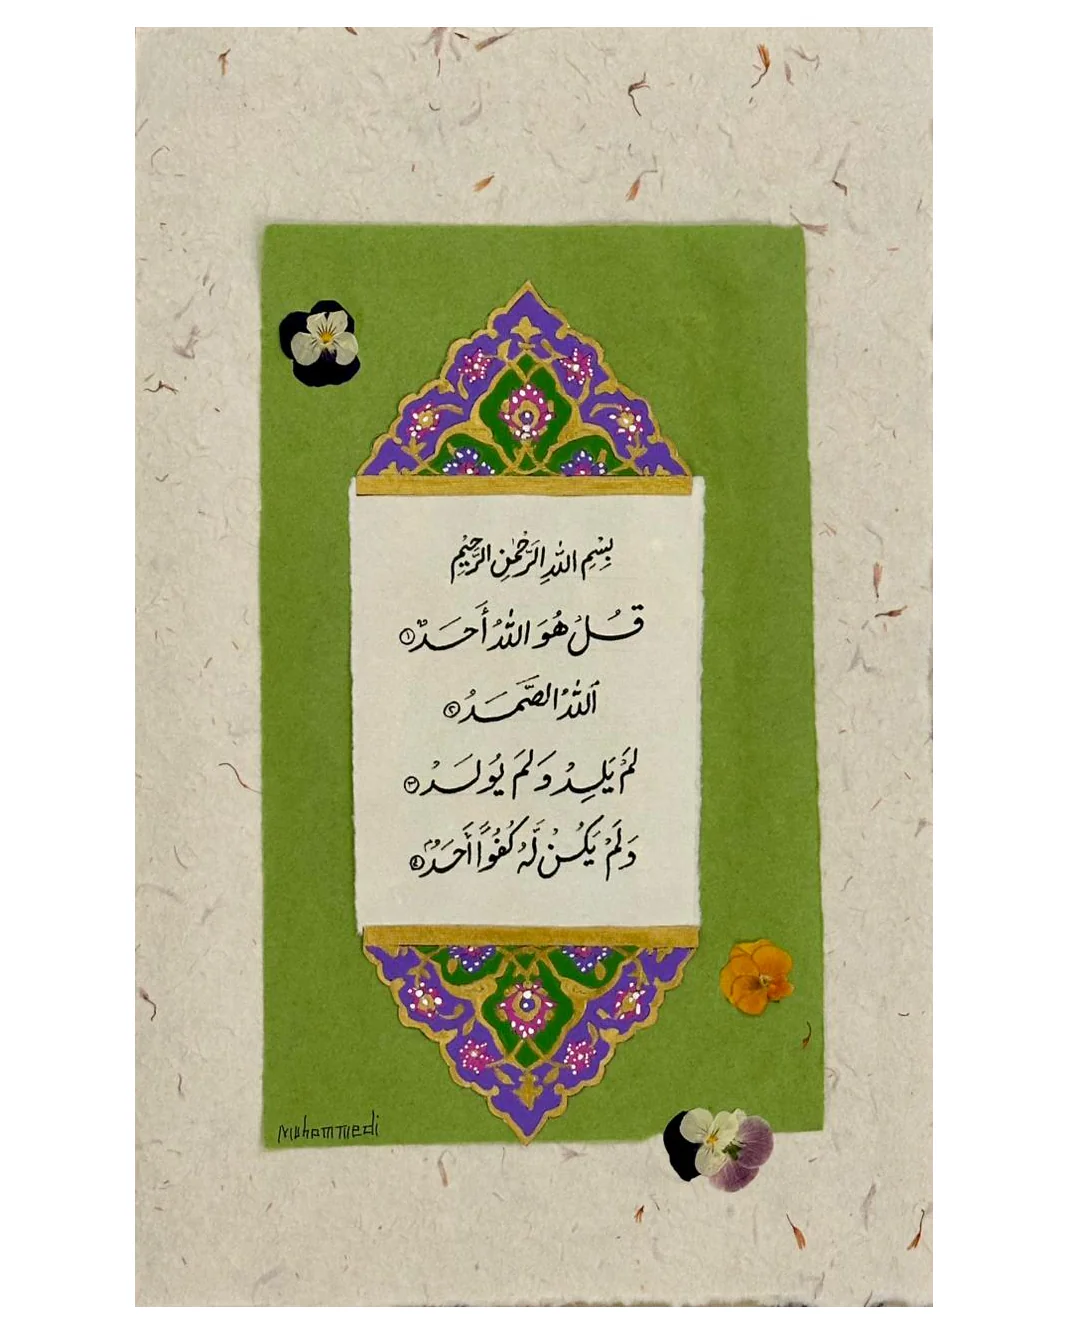 بِسْمِ اللهِ الرَّحْمٰنِ الرَّحِيْمِ
قُلْ هُوَ اللهُ أَحَدٌ ١
اَللهُ الصَّمَدُ ٢
لَمْ يَلِدْ وَلَمْ يُولَدْ ٣
وَلَمْ يَكُنْ لَّهُ كُفُوًا أَحَدٌ ٤
Muhammedi